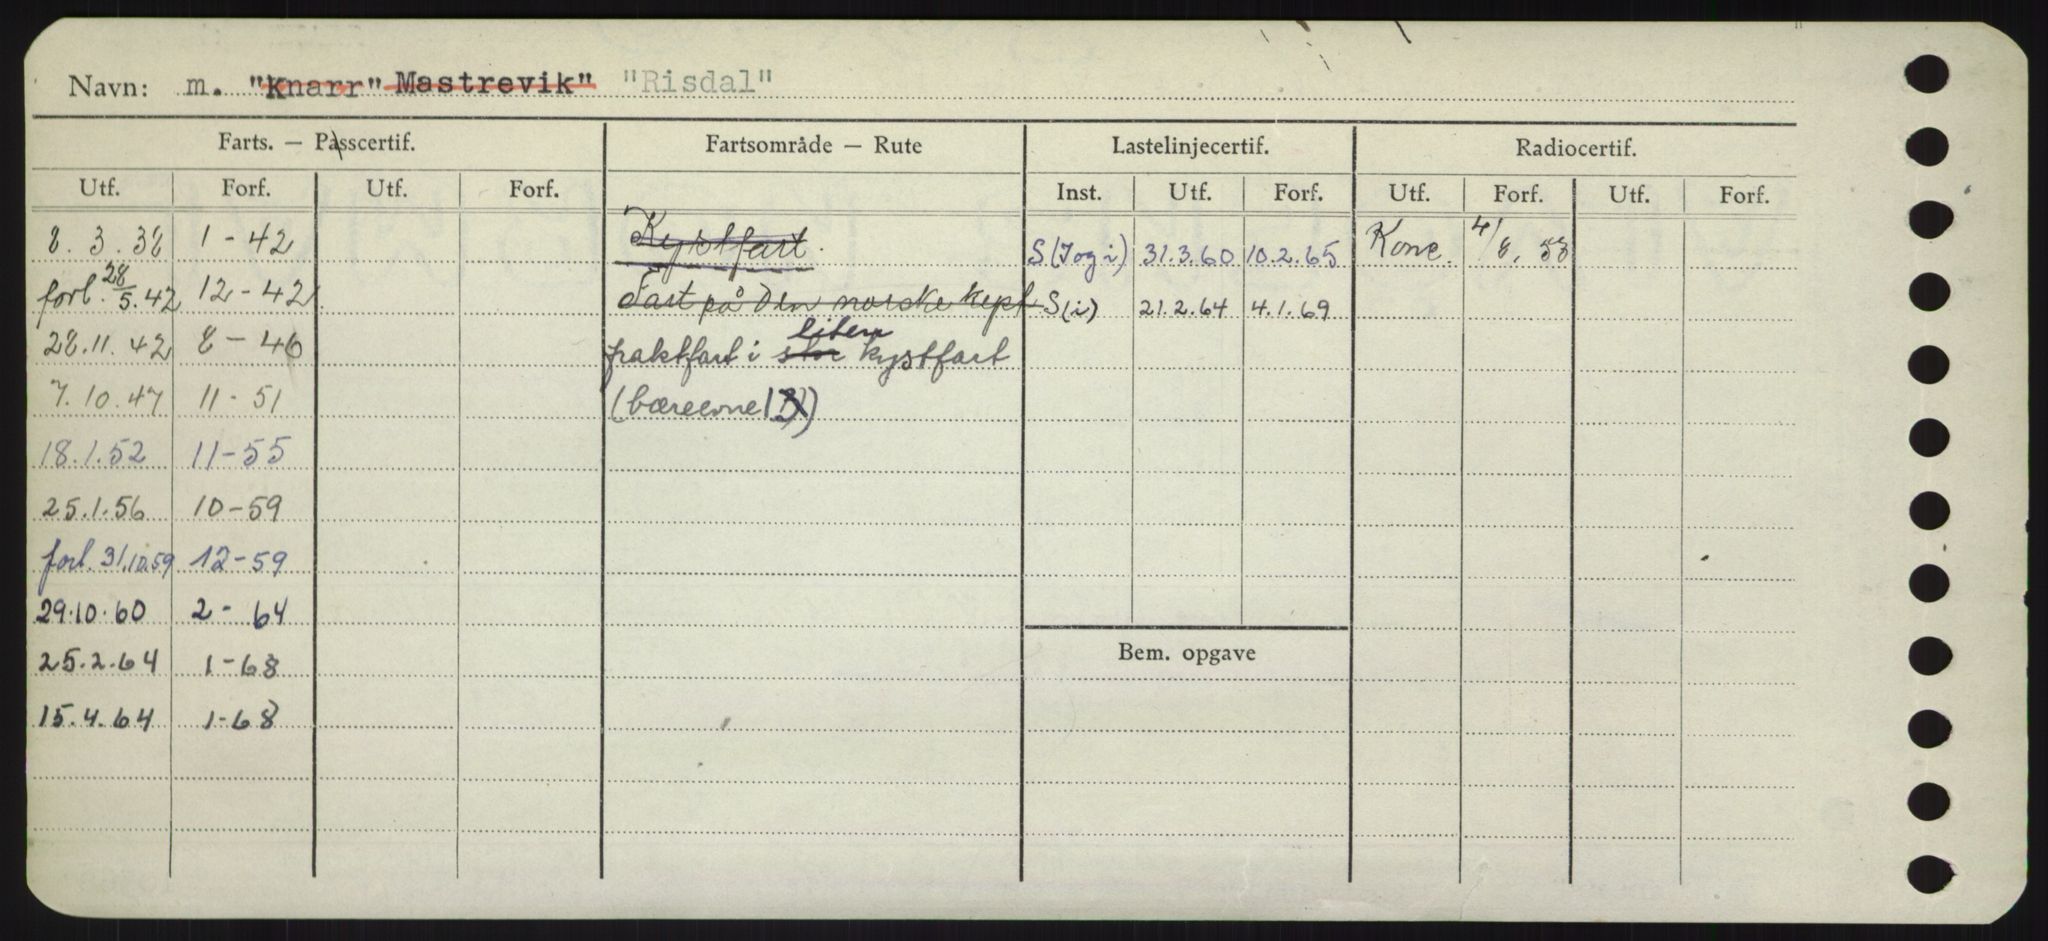 Navn: m. "Knarr" Mastrevik" "Risdal"
Farts. — Passcertif. Fartsområde — Rute Lastelinjecertif. Radiocertif.
Utf. Forf. Utf. Forf. Inst. Utf. Forf. Utf. Forf. Utf. Forf.
8.3.38 1-42 Kystfart. S(Jog i) 31.3.60 10.2.65 Konc. 4/8.58
forl. 28/5.42 12-42 Fart på den norske kyst S(i) 21.2.64 4.1.69
liten
28.11.42 8-46 fraktfart i stor kystfart
7.10.47 11-51 (bæreevne
18.1.52 11-55
25.1.56 10-59
forl. 31.10.59 12-59
29.10.60 2-64
Bem. opgave
25.2.64 1-68
15.4.64 1-68